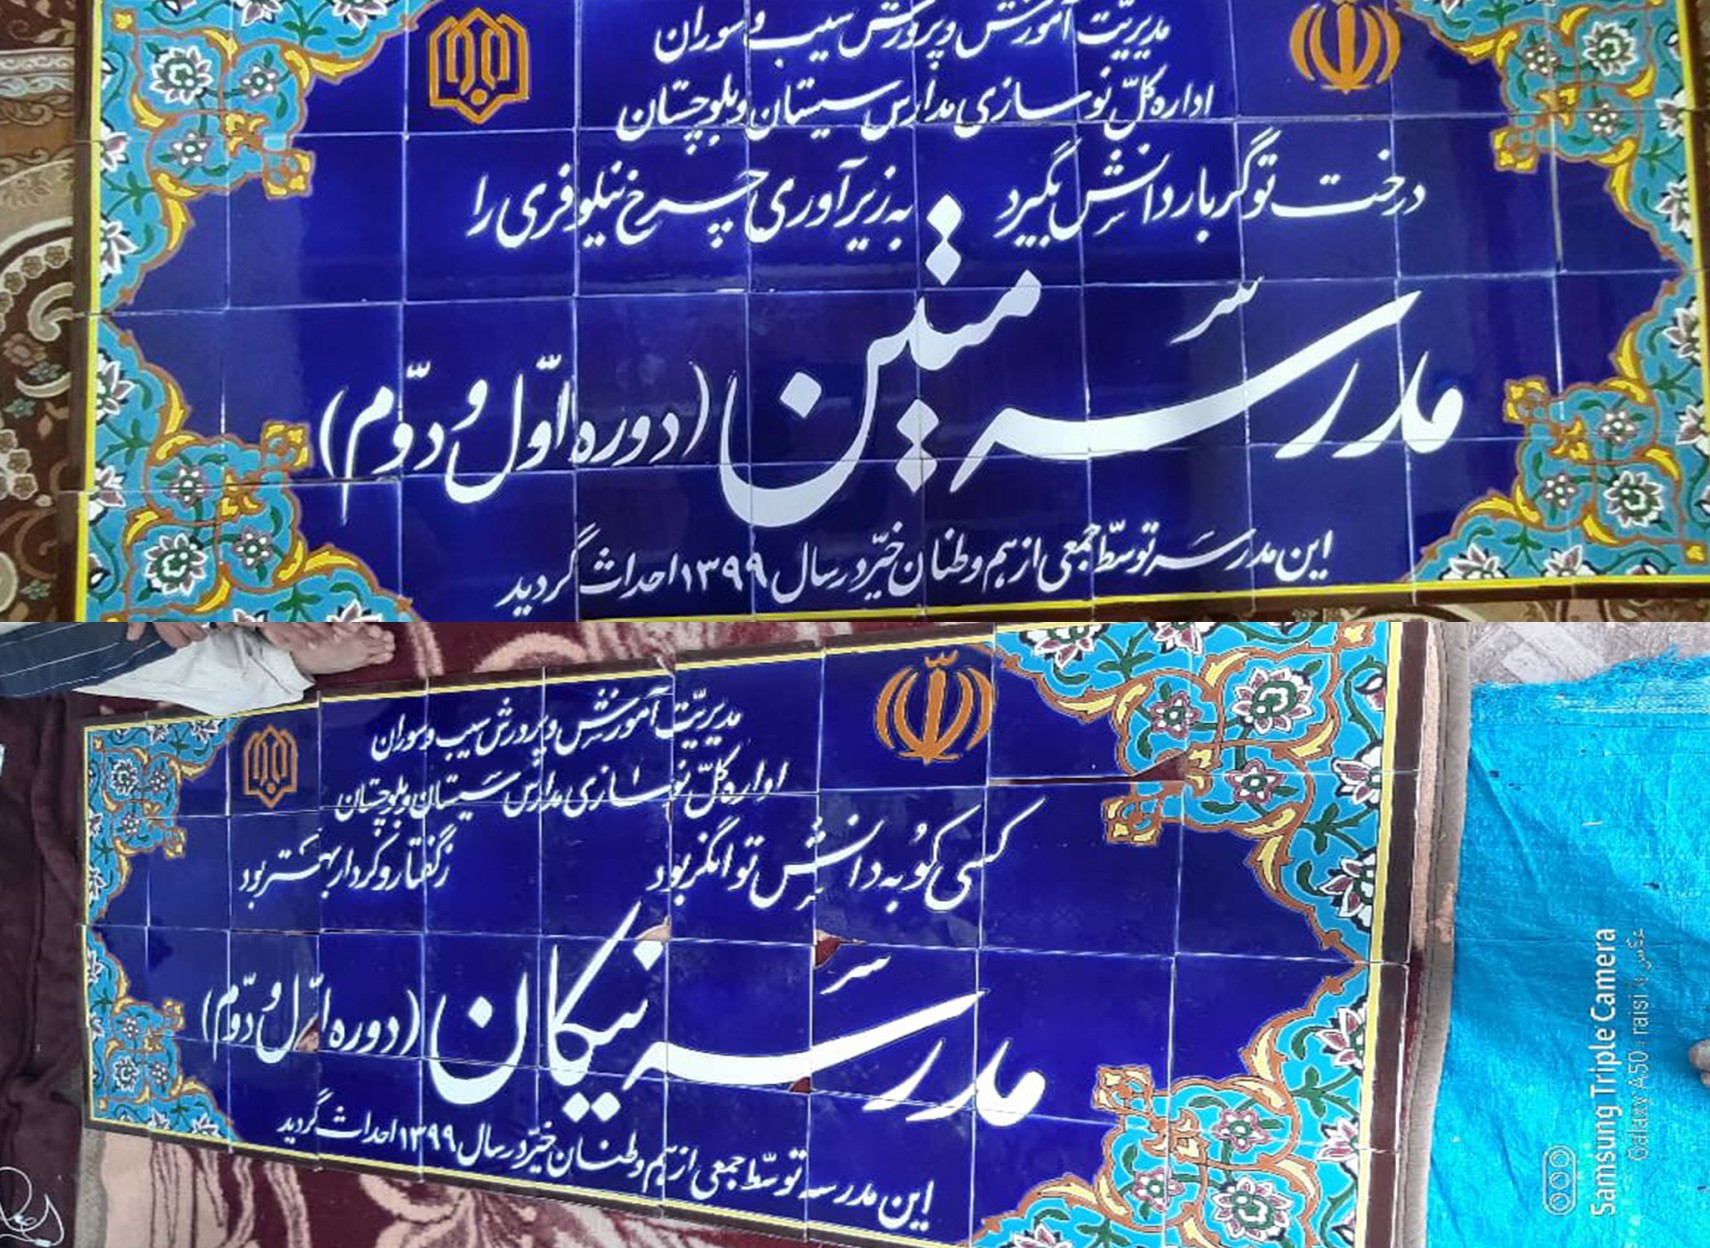 مدیریّت آموزش و پرورش سیب و سوران
اداره کلّ نوسازی مدارس سیستان و بلوچستان
درخت تو گر بار دانش بگیرد به زیر آوری چرخ نیلوفری را
مدرسه متین (دوره اوّل و دوّم)
این مدرسه توسّط جمعی از هم وطنان خیّر در سال ۱۳۹۹ احداث گردید
مدیریّت آموزش و پرورش سیب و سوران
اداره کلّ نوسازی مدارس سیستان و بلوچستان
کسی کو به دانش توانگر بود ز گفتار و کردار بهتر بود
مدرسه نیکان (دوره اوّل و دوّم)
این مدرسه توسّط جمعی از هم وطنان خیّر در سال ۱۳۹۹ احداث گردید
Samsung Triple Camera
عکس با raisi Galaxy A50